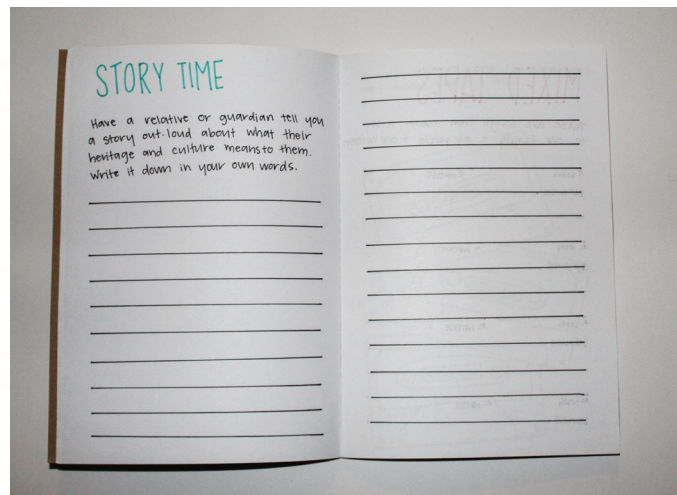 STORY TIME
Have a relative or guardian tell you
a story out-loud about what their
heritage and culture means to them.
Write it down in your own words.
MIXED TAPES